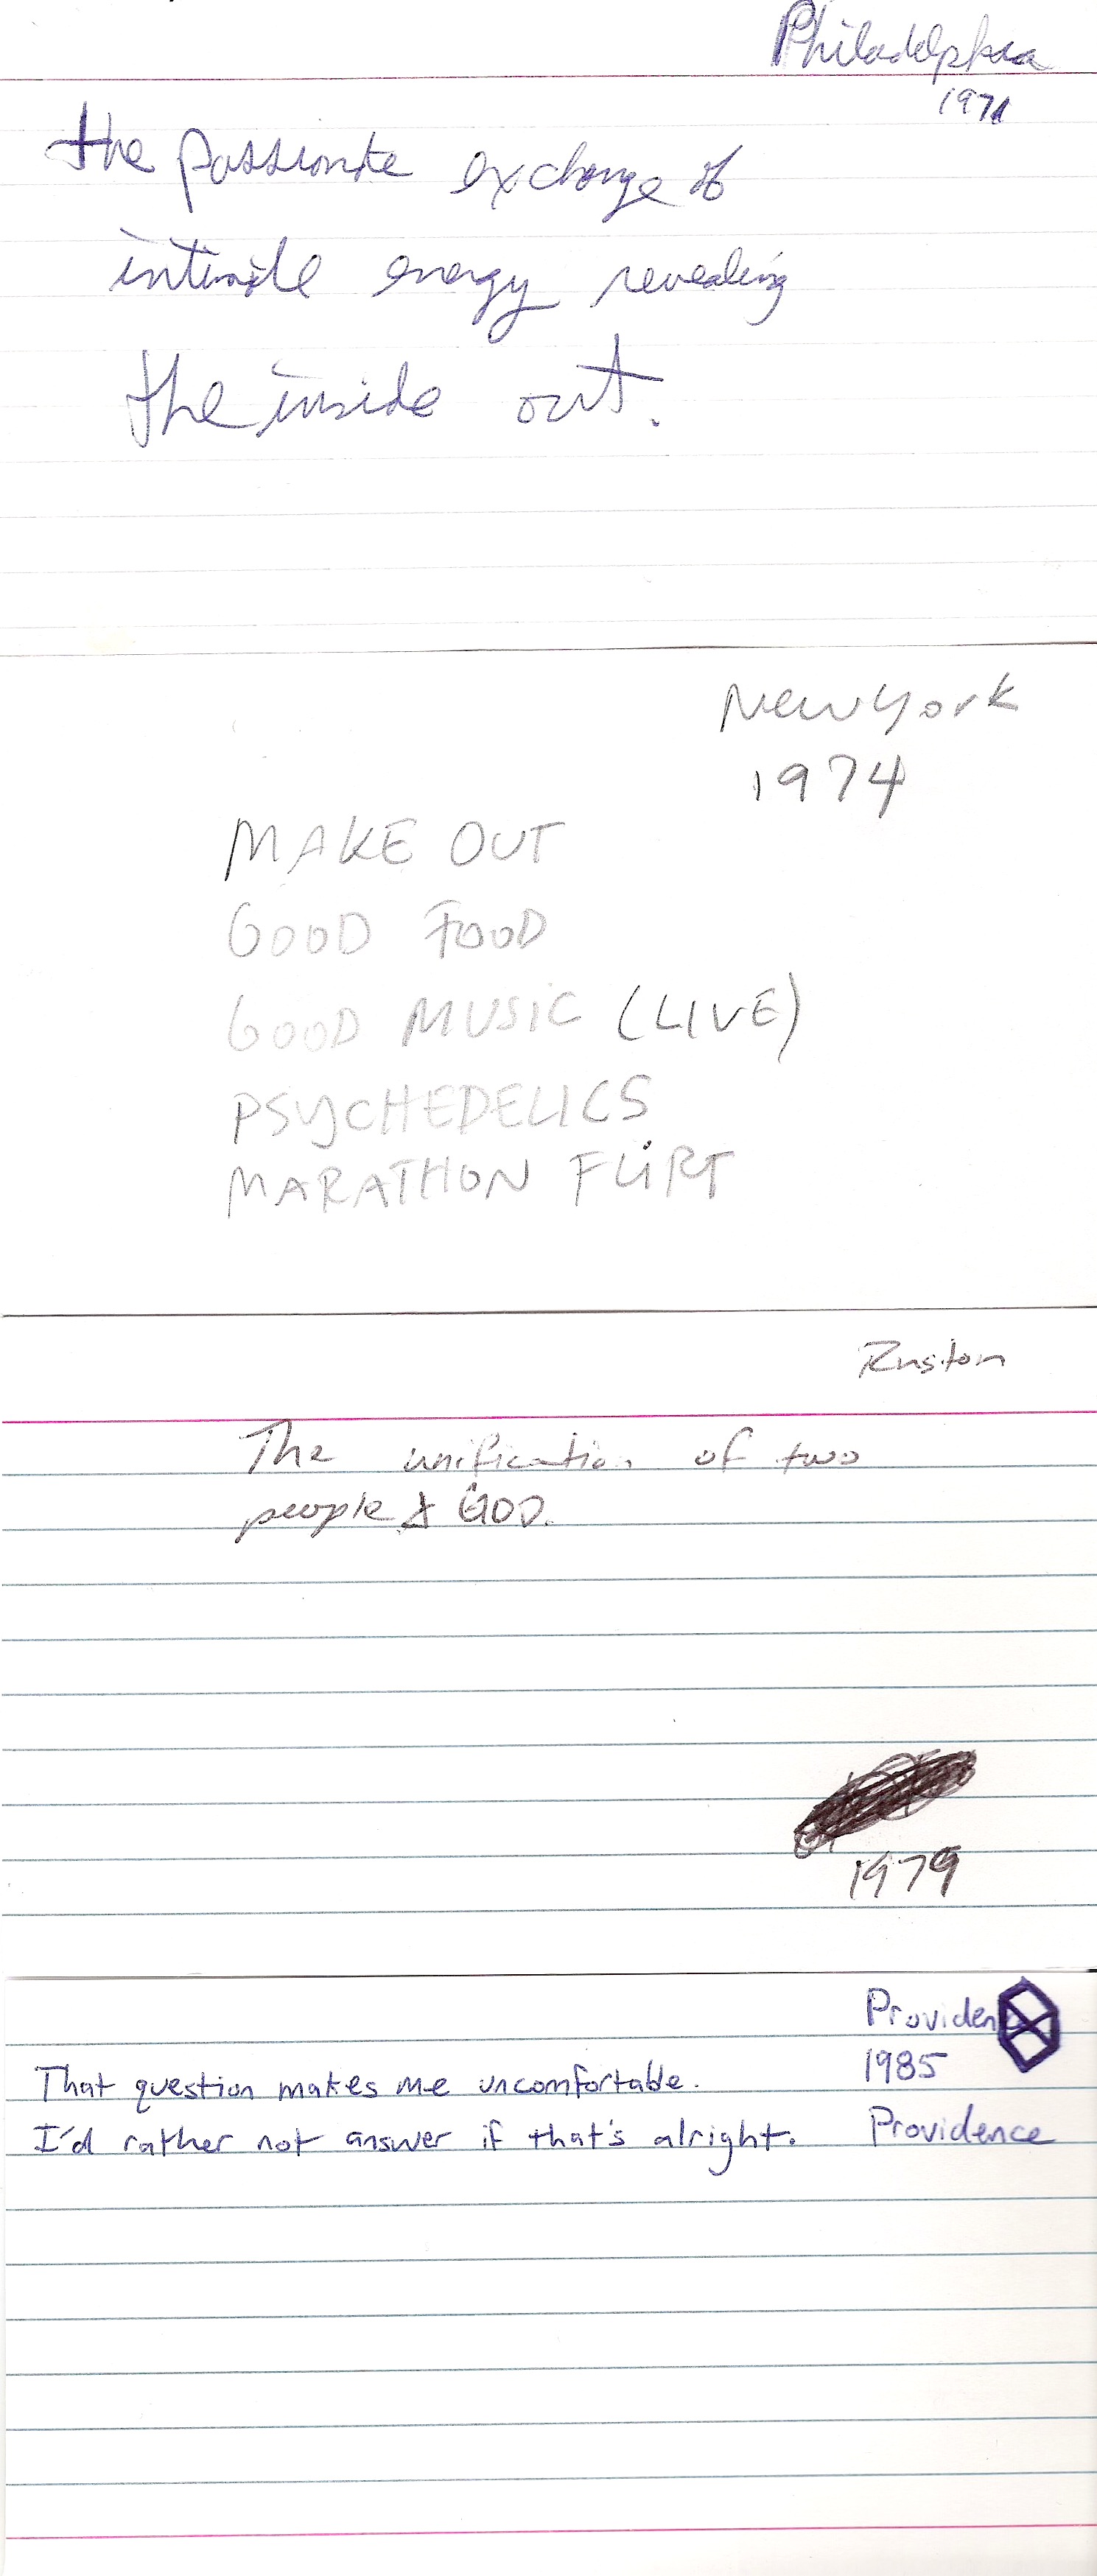 Philadelphia
1971
the passionate exchange of
intimate energy revealing
the inside out.
New York
1974
MAKE OUT
GOOD FOOD
GOOD MUSIC (LIVE)
PSYCHEDELICS
MARATHON FLiRT
Ruston
The unification of two
people & GOD.
1979
Providen
1985
That question makes me uncomfortable.
I'd rather not answer if that's alright.
Providence